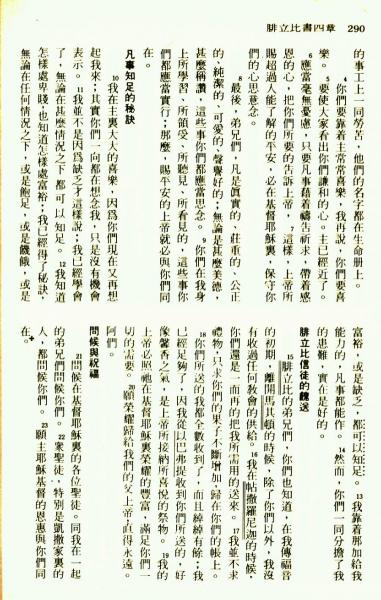 腓立比書四章 290
的事工上一同勞苦，他們的名字都在生命册上。
4 你們要靠着主常常喜樂，我再說，你們要喜
樂。5 要使大家看出你們謙和的心。主已經近了。
6 應當毫無憂慮，只要凡事藉着禱告祈求，帶着感
恩的心，把你們所要的告訴上帝，7 這樣，上帝所
賜超過人能了解的平安，必在基督耶穌裏，保守你
們的心思意念。
8 最後，弟兄們，凡是真實的、莊重的、公正
的、純潔的、可愛的、聲譽好的；無論是甚麼美德，
甚麼稱讚，這些事你們都應當思念。9 你們在我身
上所學習、所領受、所聽見、所看見的，這些事你
們都應當實行；那麼，賜平安的上帝就必與你們同
在。
凡事知足的秘訣
10 我在主裏大大的喜樂，因爲你們現在又再想
起我來；其實你們一向都在想念我，只是沒有機會
表示。11 我並不是因爲缺乏才這樣說；我已經學會
了，無論在甚麼情況之下都可以知足。12 我知道
怎樣處卑賤，也知道怎樣處富裕；我已經得了秘訣，
無論在任何情況之下，或是飽足，或是饑餓，或是
富裕，或是缺乏，都可以知足。13 我靠着那加給我
能力的，凡事都能作。14 然而，你們一同分擔了我
的患難，實在是好的。
腓立比信徒的餽送
15 腓立比的弟兄們，你們也知道，在我傳福音
的初期，離開馬其頓的時候，除了你們以外，我沒
有收過任何教會的供給。16 我在帖撒羅尼迦的時候，
你們還是一而再的把我所需用的送來。17 我並不求
禮物，只求你們的果子不斷增加，歸在你們的帳上。
18 你們所送的我都全數收到了，而且綽綽有餘；我
已經足夠了，因我從以巴弗提收到你們所送的，好
像馨香之氣，是上帝所接納所喜悅的祭物。19 我的
上帝必照祂在基督耶穌裏榮耀的豐富，滿足你們一
切的需要。20 願榮耀歸給我們的父上帝，直得永遠。
阿們。
問候與祝福
21 問候在基督耶穌裏的各位聖徒。同我在一起
的弟兄們問候你們。22 衆聖徒，特別是凱撒家裏的
人，都問候你們。23 願主耶穌基督的恩惠與你們同
在。